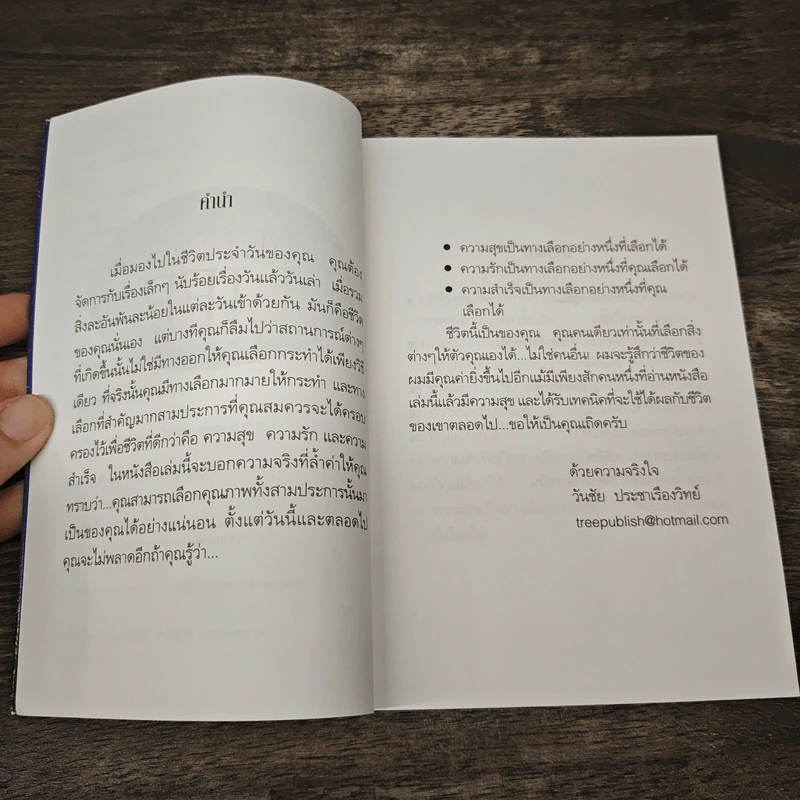 คำนำ
เมื่อมองไปในชีวิตประจำวันของคุณ คุณต้อง
จัดการกับเรื่องเล็กๆ นับร้อยเรื่องวันแล้ววันเล่า เมื่อรวม
สิ่งละอันพันละน้อยในแต่ละวันเข้าด้วยกัน มันก็คือชีวิต
ของคุณนั่นเอง แต่บางทีคุณก็ลืมไปว่าสถานการณ์ต่างๆ
ที่เกิดขึ้นนั้นไม่ใช่มีทางออกให้คุณเลือกกระทำได้เพียงวิธี
เดียว ที่จริงนั้นคุณมีทางเลือกมากมายให้กระทำ และทาง
เลือกที่สำคัญมากสามประการที่คุณสมควรจะได้ครอบ
ครองไว้เพื่อชีวิตที่ดีกว่าคือ ความสุข ความรัก และความ
สำเร็จ ในหนังสือเล่มนี้จะบอกความจริงที่ล้ำค่าให้คุณ
ทราบว่า...คุณสามารถเลือกคุณภาพทั้งสามประการนั้นมา
เป็นของคุณได้อย่างแน่นอน ตั้งแต่วันนี้และตลอดไป
คุณจะไม่พลาดอีกถ้าคุณรู้ว่า...
● ความสุขเป็นทางเลือกอย่างหนึ่งที่เลือกได้
● ความรักเป็นทางเลือกอย่างหนึ่งที่คุณเลือกได้
● ความสำเร็จเป็นทางเลือกอย่างหนึ่งที่คุณ
เลือกได้
ชีวิตนี้เป็นของคุณ คุณคนเดียวเท่านั้นที่เลือกสิ่ง
ต่างๆให้ตัวคุณเองได้...ไม่ใช่คนอื่น! ผมจะรู้สึกว่าชีวิตของ
ผมมีคุณค่ายิ่งขึ้นไปอีกแม้มีเพียงสักคนหนึ่งที่อ่านหนังสือ
เล่มนี้แล้วมีความสุข และได้รับเทคนิคที่จะใช้ได้ผลกับชีวิต
ของเขาตลอดไป...ขอให้เป็นคุณเถิดครับ
ด้วยความจริงใจ
วันชัย ประชาเรืองวิทย์
treepublish@hotmail.com